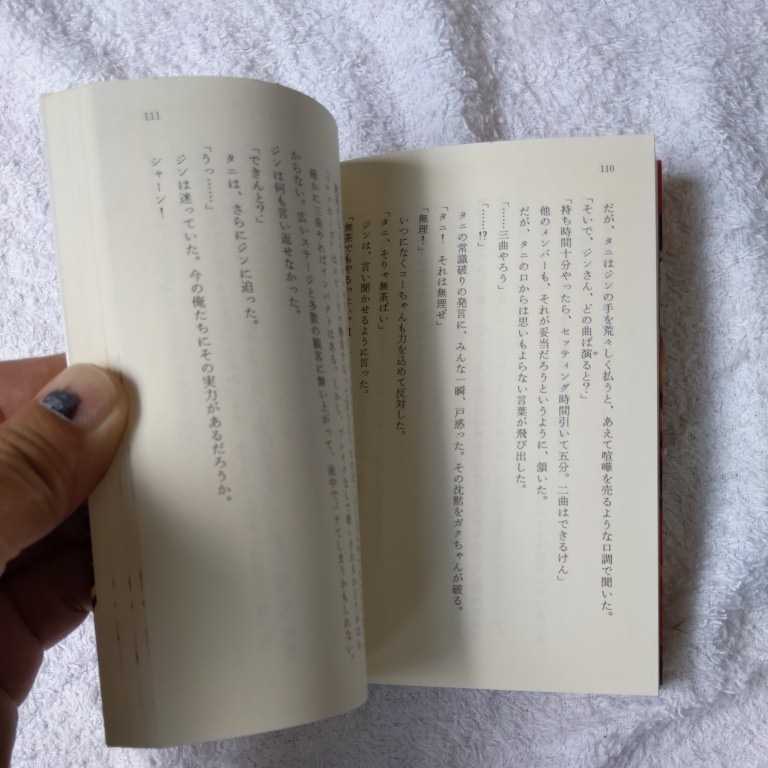 110
だが、タニはジンの手を荒々しく払うと、あえて喧嘩を売るような口調で聞いた。
「そいで、ジンさん、どの曲ば演ると?」
「持ち時間十分やったら、セッティング時間引いて五分。二曲はできるけん」
他のメンバーも、それが妥当だろうというように、頷いた。
だが、タニの口からは思いもよらない言葉が飛び出した。
「……三曲やろう」
「……!?」
タニの常識破りの発言に、みんな一瞬、戸惑った。その沈黙をガクちゃんが破る。
「タニ! それは無理ぜ」
「無理!」
いつになくコーちゃんも力を込めて反対した。
「タニ、そりゃ無茶ばい」
ジンは、言い聞かせるように言った。
「無茶でもやる
111
からない。広いステージと多数の観客に舞い上がって、途中で
ジンは何も言い返せなかった。
「できんと?」
タニは、さらにジンに迫った。
「うっ……」
ジンは迷っていた。今の俺たちにその実力があるだろうか。
シャーン!